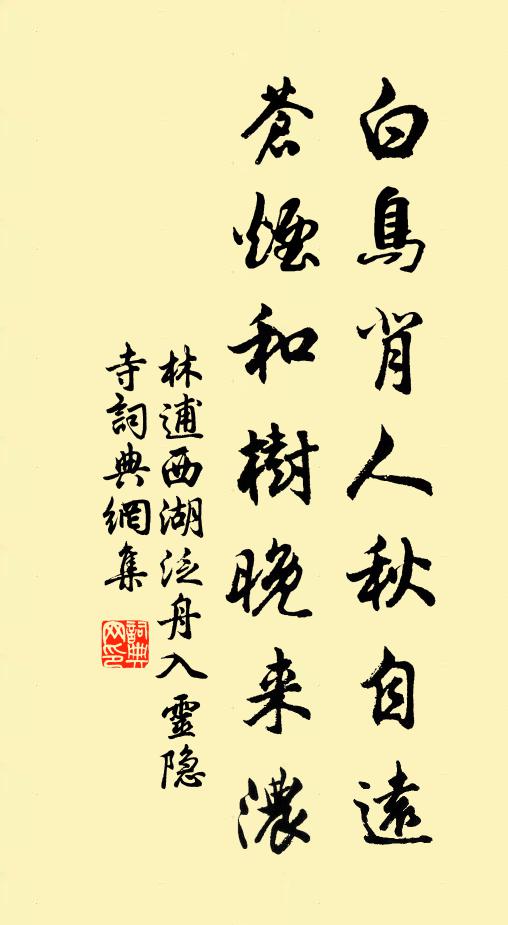 白鳥背人秋自遠
蒼煙和樹晚来濃
林逋西湖泛舟入靈隐
寺詞典網集
詞典
网印